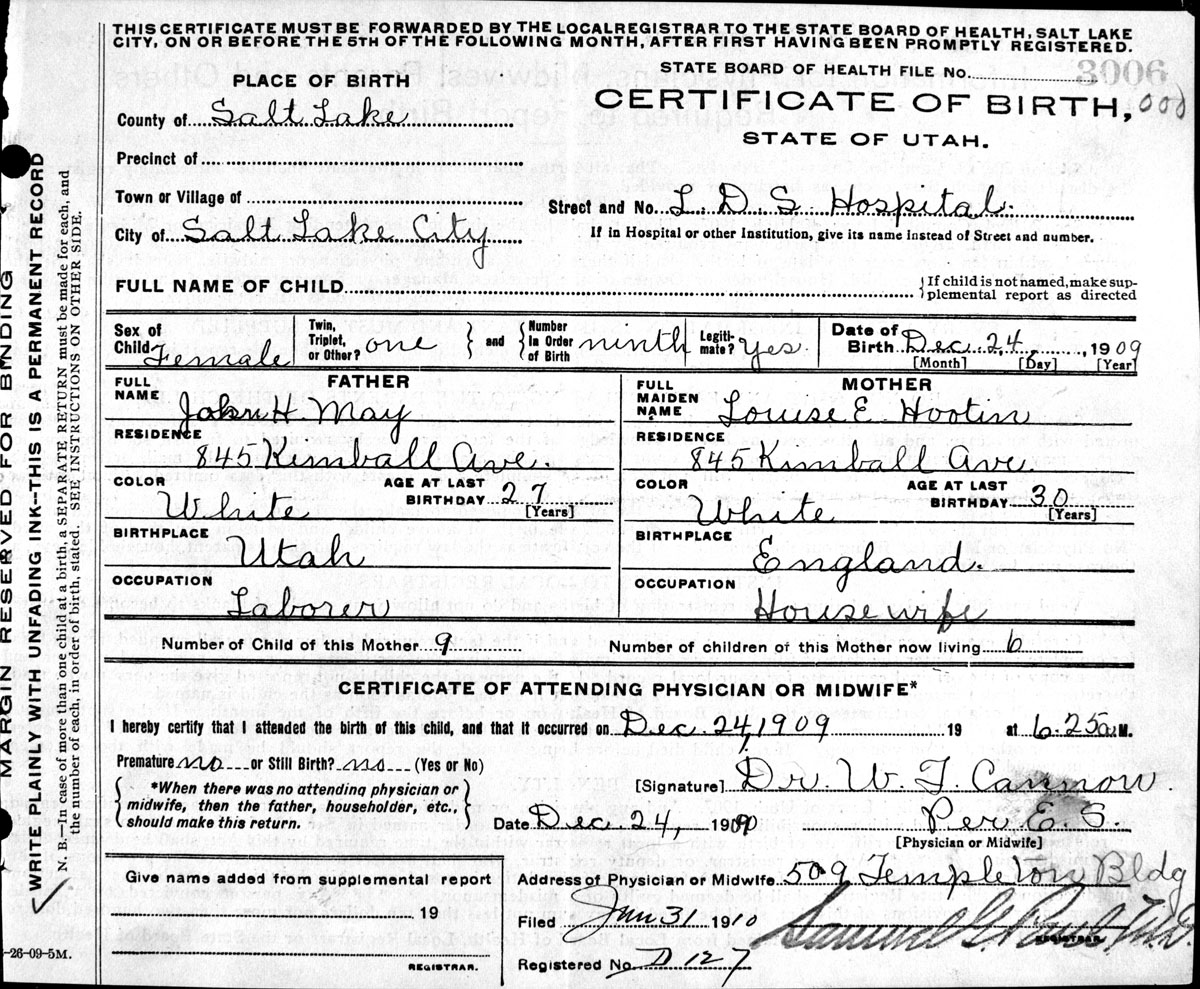 THIS CERTIFICATE MUST BE FORWARDED BY THE LOCAL REGISTRAR TO THE STATE BOARD OF HEALTH, SALT LAKE
CITY, ON OR BEFORE THE 5TH OF THE FOLLOWING MONTH, AFTER FIRST HAVING BEEN PROMPTLY REGISTERED.
STATE BOARD OF HEALTH FILE No. 3006
PLACE OF BIRTH
CERTIFICATE OF BIRTH,
County of Salt Lake
STATE OF UTAH.
Precinct of
Town or Village of
Street and No. L. D. S. Hospital.
City of Salt Lake City
If in Hospital or other Institution, give its name instead of Street and number.
FULL NAME OF CHILD
If child is not named, make sup-
plemental report as directed
Sex of Child Female
Twin, Triplet, or Other? one
and
Number In Order of Birth ninth
Legiti-mate? yes.
Date of Birth Dec. 24, 1909
[Month] [Day] [Year]
FATHER
FULL NAME John H. May
RESIDENCE 845 Kimball Ave.
COLOR White
AGE AT LAST BIRTHDAY 27 [Years]
BIRTHPLACE Utah
OCCUPATION Laborer
MOTHER
FULL MAIDEN NAME Louise E. Hootin
RESIDENCE 845 Kimball Ave.
COLOR White
AGE AT LAST BIRTHDAY 30 [Years]
BIRTHPLACE England.
OCCUPATION Housewife
Number of Child of this Mother 9
Number of children of this Mother now living 6
CERTIFICATE OF ATTENDING PHYSICIAN OR MIDWIFE*
I hereby certify that I attended the birth of this child, and that it occurred on Dec. 24, 1909 19 at 6.25 a M.
Premature no or Still Birth? no (Yes or No)
*When there was no attending physician or
midwife, then the father, householder, etc.,
should make this return.
[Signature] Dr. W. T. Cannon.
Date Dec. 24, 1909
Per E. S.
[Physician or Midwife]
Give name added from supplemental report
19
REGISTRAR.
Address of Physician or Midwife 509 Templeton Bldg
Filed Jan 31 1910
Samuel G. Paul M.D.
REGISTRAR
Registered No. D 127
MARGIN RESERVED FOR BINDING
WRITE PLAINLY WITH UNFADING INK--THIS IS A PERMANENT RECORD
N. B.—In case of more than one child at a birth, a SEPARATE RETURN must be made for each, and
the number of each, in order of birth, stated. SEE INSTRUCTIONS ON OTHER SIDE.
-26-09-5M.